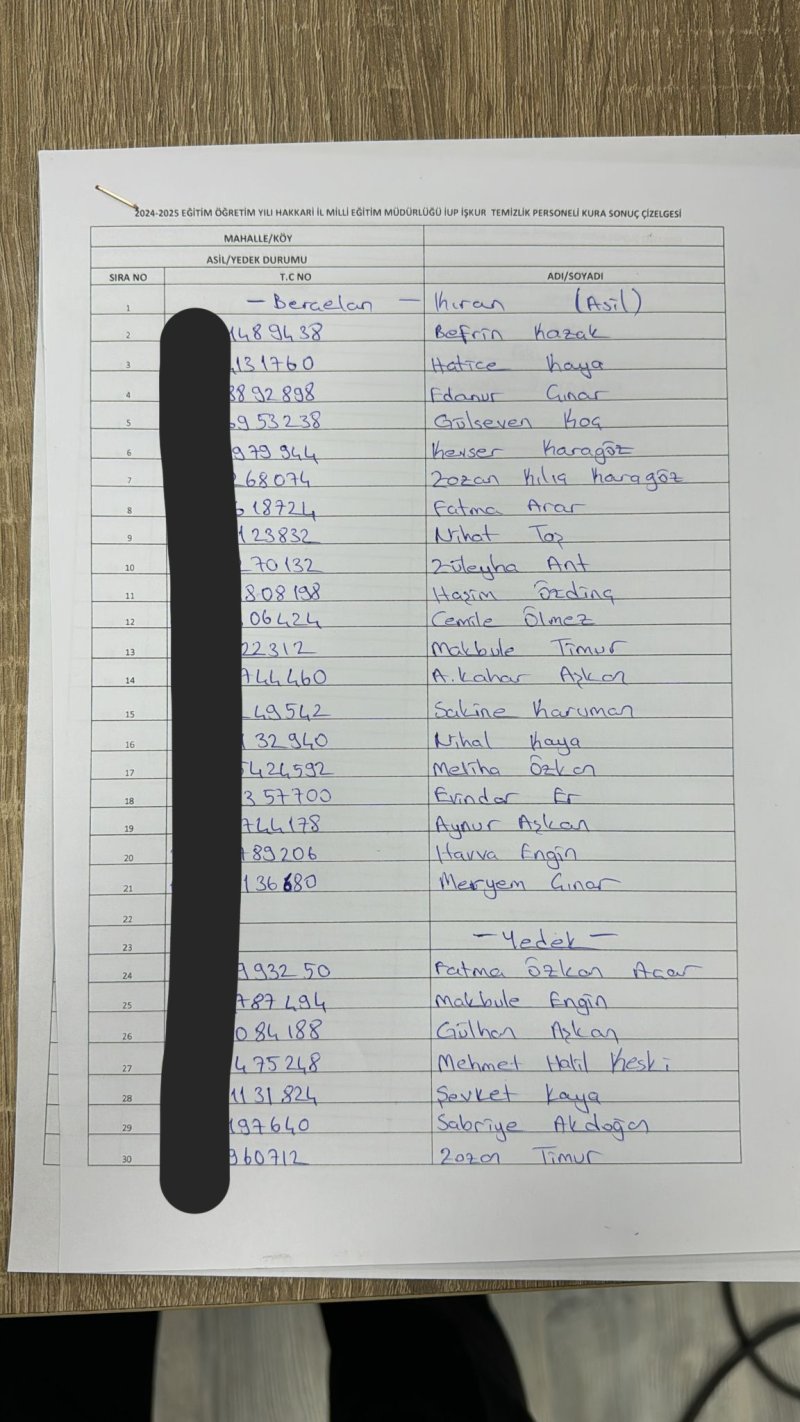 2024-2025 EĞİTİM ÖĞRETİM YILI HAKKARİ İL MİLLİ EĞİTİM MÜDÜRLÜĞÜ İUP İŞKUR TEMİZLİK PERSONELİ KURA SONUÇ ÇİZELGESİ
MAHALLE/KÖY
ASİL/YEDEK DURUMU
SIRA NO T.C NO ADI/SOYADI
1 — Berçelan — Kıran (Asil)
2 1489438 Befrin Kazak
3 131760 Hatice Kaya
4 8892898 Edanur Çınar
5 953238 Gülseven Koç
6 979944 Kevser Karagöz
7 68074 Zozan Kılıç Karagöz
8 18724 Fatma Arar
9 123832 Nihat Taş
10 70132 Züleyha Ant
11 808198 Haşim Özdinç
12 06424 Cemile Ölmez
13 22312 Makbule Timur
14 744460 A.Kahar Aşkan
15 49542 Sakine Karuman
16 32940 Nihal Kaya
17 424592 Meliha Özkan
18 357700 Evindar Er
19 744178 Aynur Aşkan
20 789206 Havva Engin
21 136680 Meryem Çınar
22
23 — Yedek —
24 993250 Fatma Özkan Acar
25 787494 Makbule Engin
26 084188 Gülhan Aşkan
27 475248 Mehmet Halil Keski
28 1131824 Şevket Kaya
29 197640 Sabriye Akdoğan
30 960712 Zozan Timur